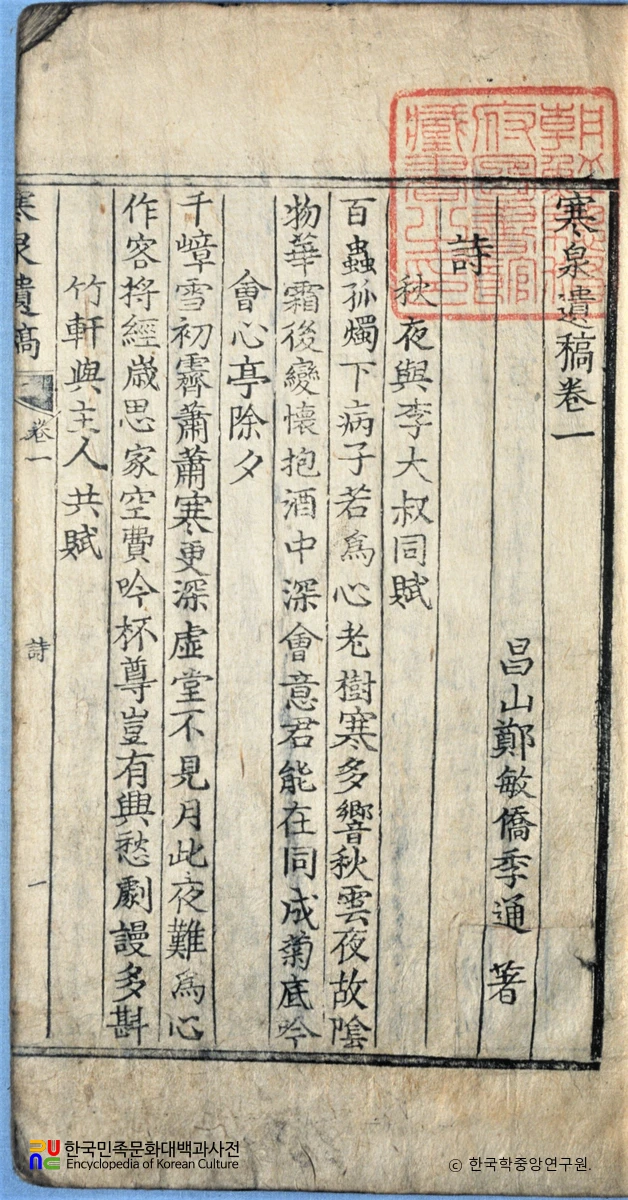 寒泉遺稿卷一
昌山鄭敏僑季通 著
詩
秋夜與李大叔同賦
百蟲孤燭下病子若爲心老樹寒多響秋雲夜故陰
物華霜後變懷抱酒中深會意君能在同成菊底吟
會心亭除夕
千嶂雪初霽蕭蕭寒更深虛堂不見月此夜難爲心
作客將經歲思家空費吟杯尊豈有興愁劇謾多斟
竹軒與主人共賦
寒泉遺稿 卷一 詩 一
한국민족문화대백과사전
Encyclopedia of Korean Culture
© 한국학중앙연구원.